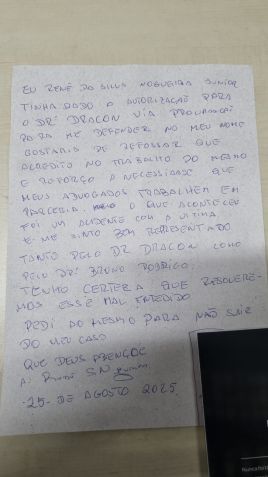 EU RENÊ DA SILVA NOGUEIRA JUNIOR
TINHA DADO A AUTORIZAÇÃO PARA
O DR° DRACON VIA PROCURAÇÃO
PARA ME DEFENDER NO MEU NOME
GOSTARIA DE REFORSAR QUE
ACREDITO NO TRABALHO DO MESMO
E REFORÇO A NECESSIDADE QUE
MEUS ADVOGADOS TRABALHEM EM
PARCERIA. O QUE ACONTECEU
FOI UM ACIDENTE COM A VITIMA
E ME SINTO BEM REPRESENTADO
TANTO PELO DR DRACON COMO
PELO DR° BRUNO RODRIGO.
TENHO CERTEZA QUE RESOLVERE-
MOS ESSE MAL ENTEDIDO
PEDI AO MESMO PARA NÃO SAIR
DO MEU CASO
QUE DEUS ABENÇOE
25 DE AGOSTO 2025